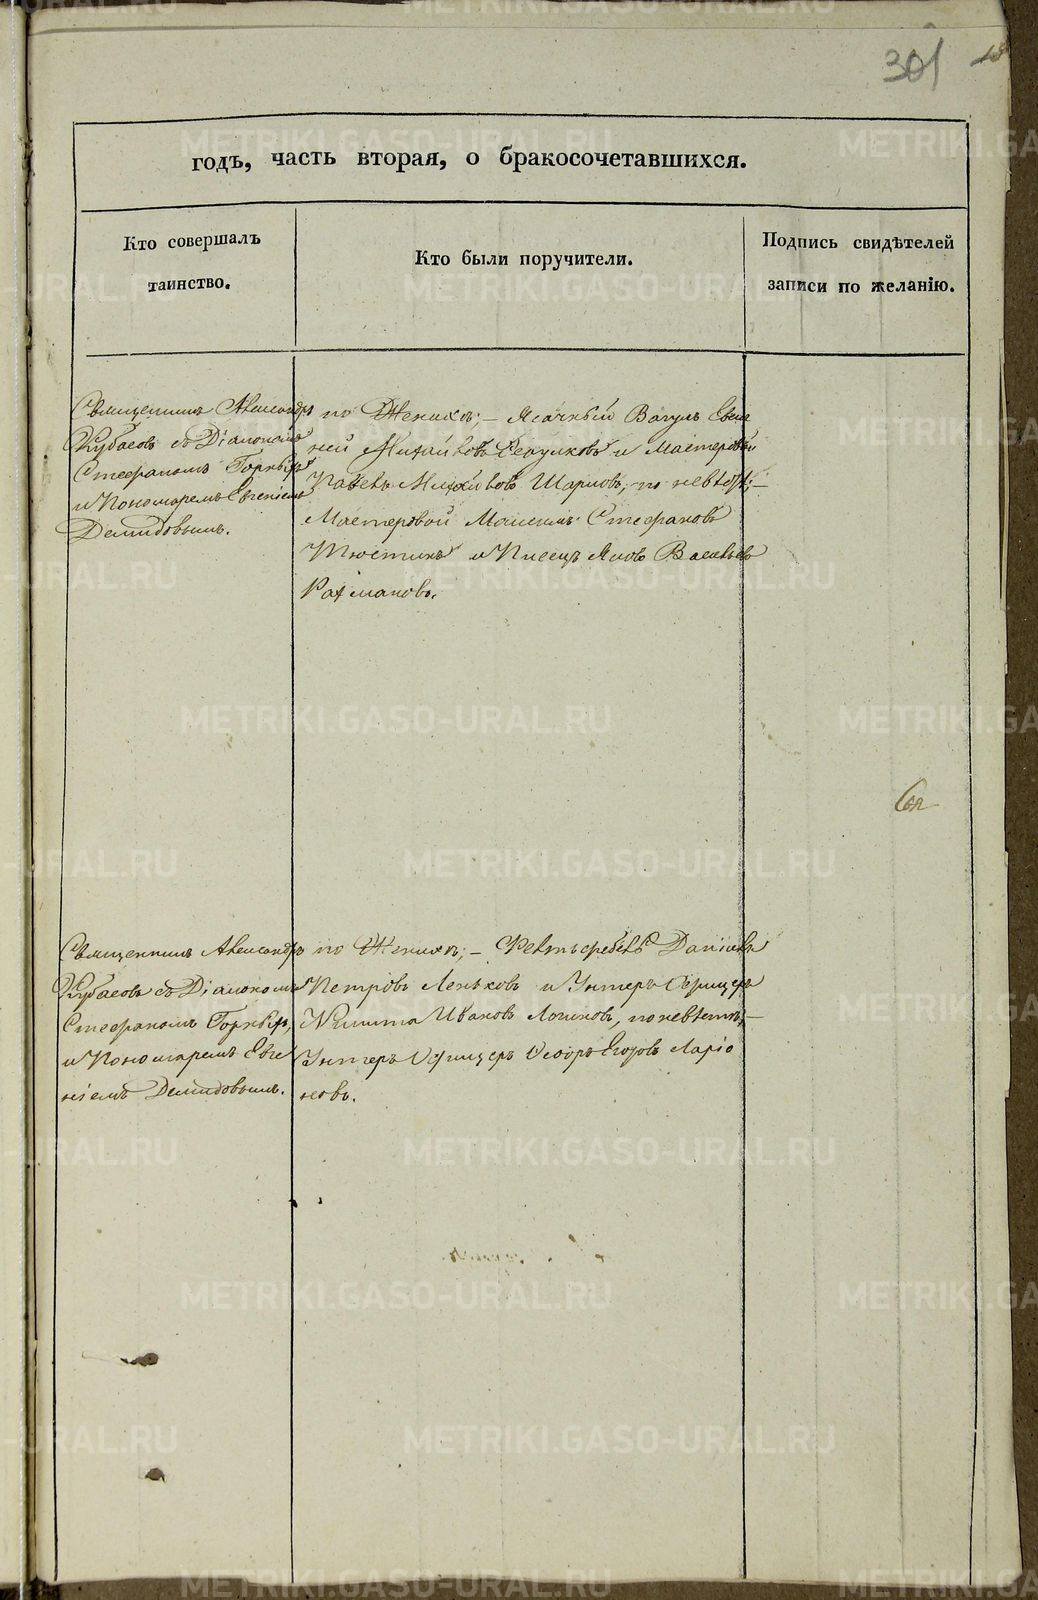 301
годъ, часть вторая, о бракосочетавшихся.
Кто совершалъ
таинство.
Кто были поручители.
Подпись свидѣтелей
записи по желанію.
Священникъ Александръ
Кубасовъ съ Діакономъ
Стефаномъ Горныхъ
и Пономаремъ Евгеніемъ
Демидовымъ.
по Женихѣ; – Ясачный Вагулъ Евге
ній Михайловъ и Мастеровой
Павелъ Михайловъ Шарповъ; по невѣстѣ; –
Мастеровой Максимъ Стефановъ
Тюстинъ и Писецъ Яковъ Васильевъ
Рахмановъ.
Священникъ Александръ
Кубасовъ съ Діакономъ
Стефаномъ Горныхъ,
и Пономаремъ Евге
ніемъ Демидовымъ.
по Женихѣ; – Фельтьфебель Даніилъ
Петровъ Леньковъ и Унтеръ Офицеръ
Никита Ивановъ Логиновъ, по невѣстѣ; –
Унтеръ Офицеръ Ѳедоръ Егоровъ Ларіо
новъ.
METRIKI.GASO-URAL.RU